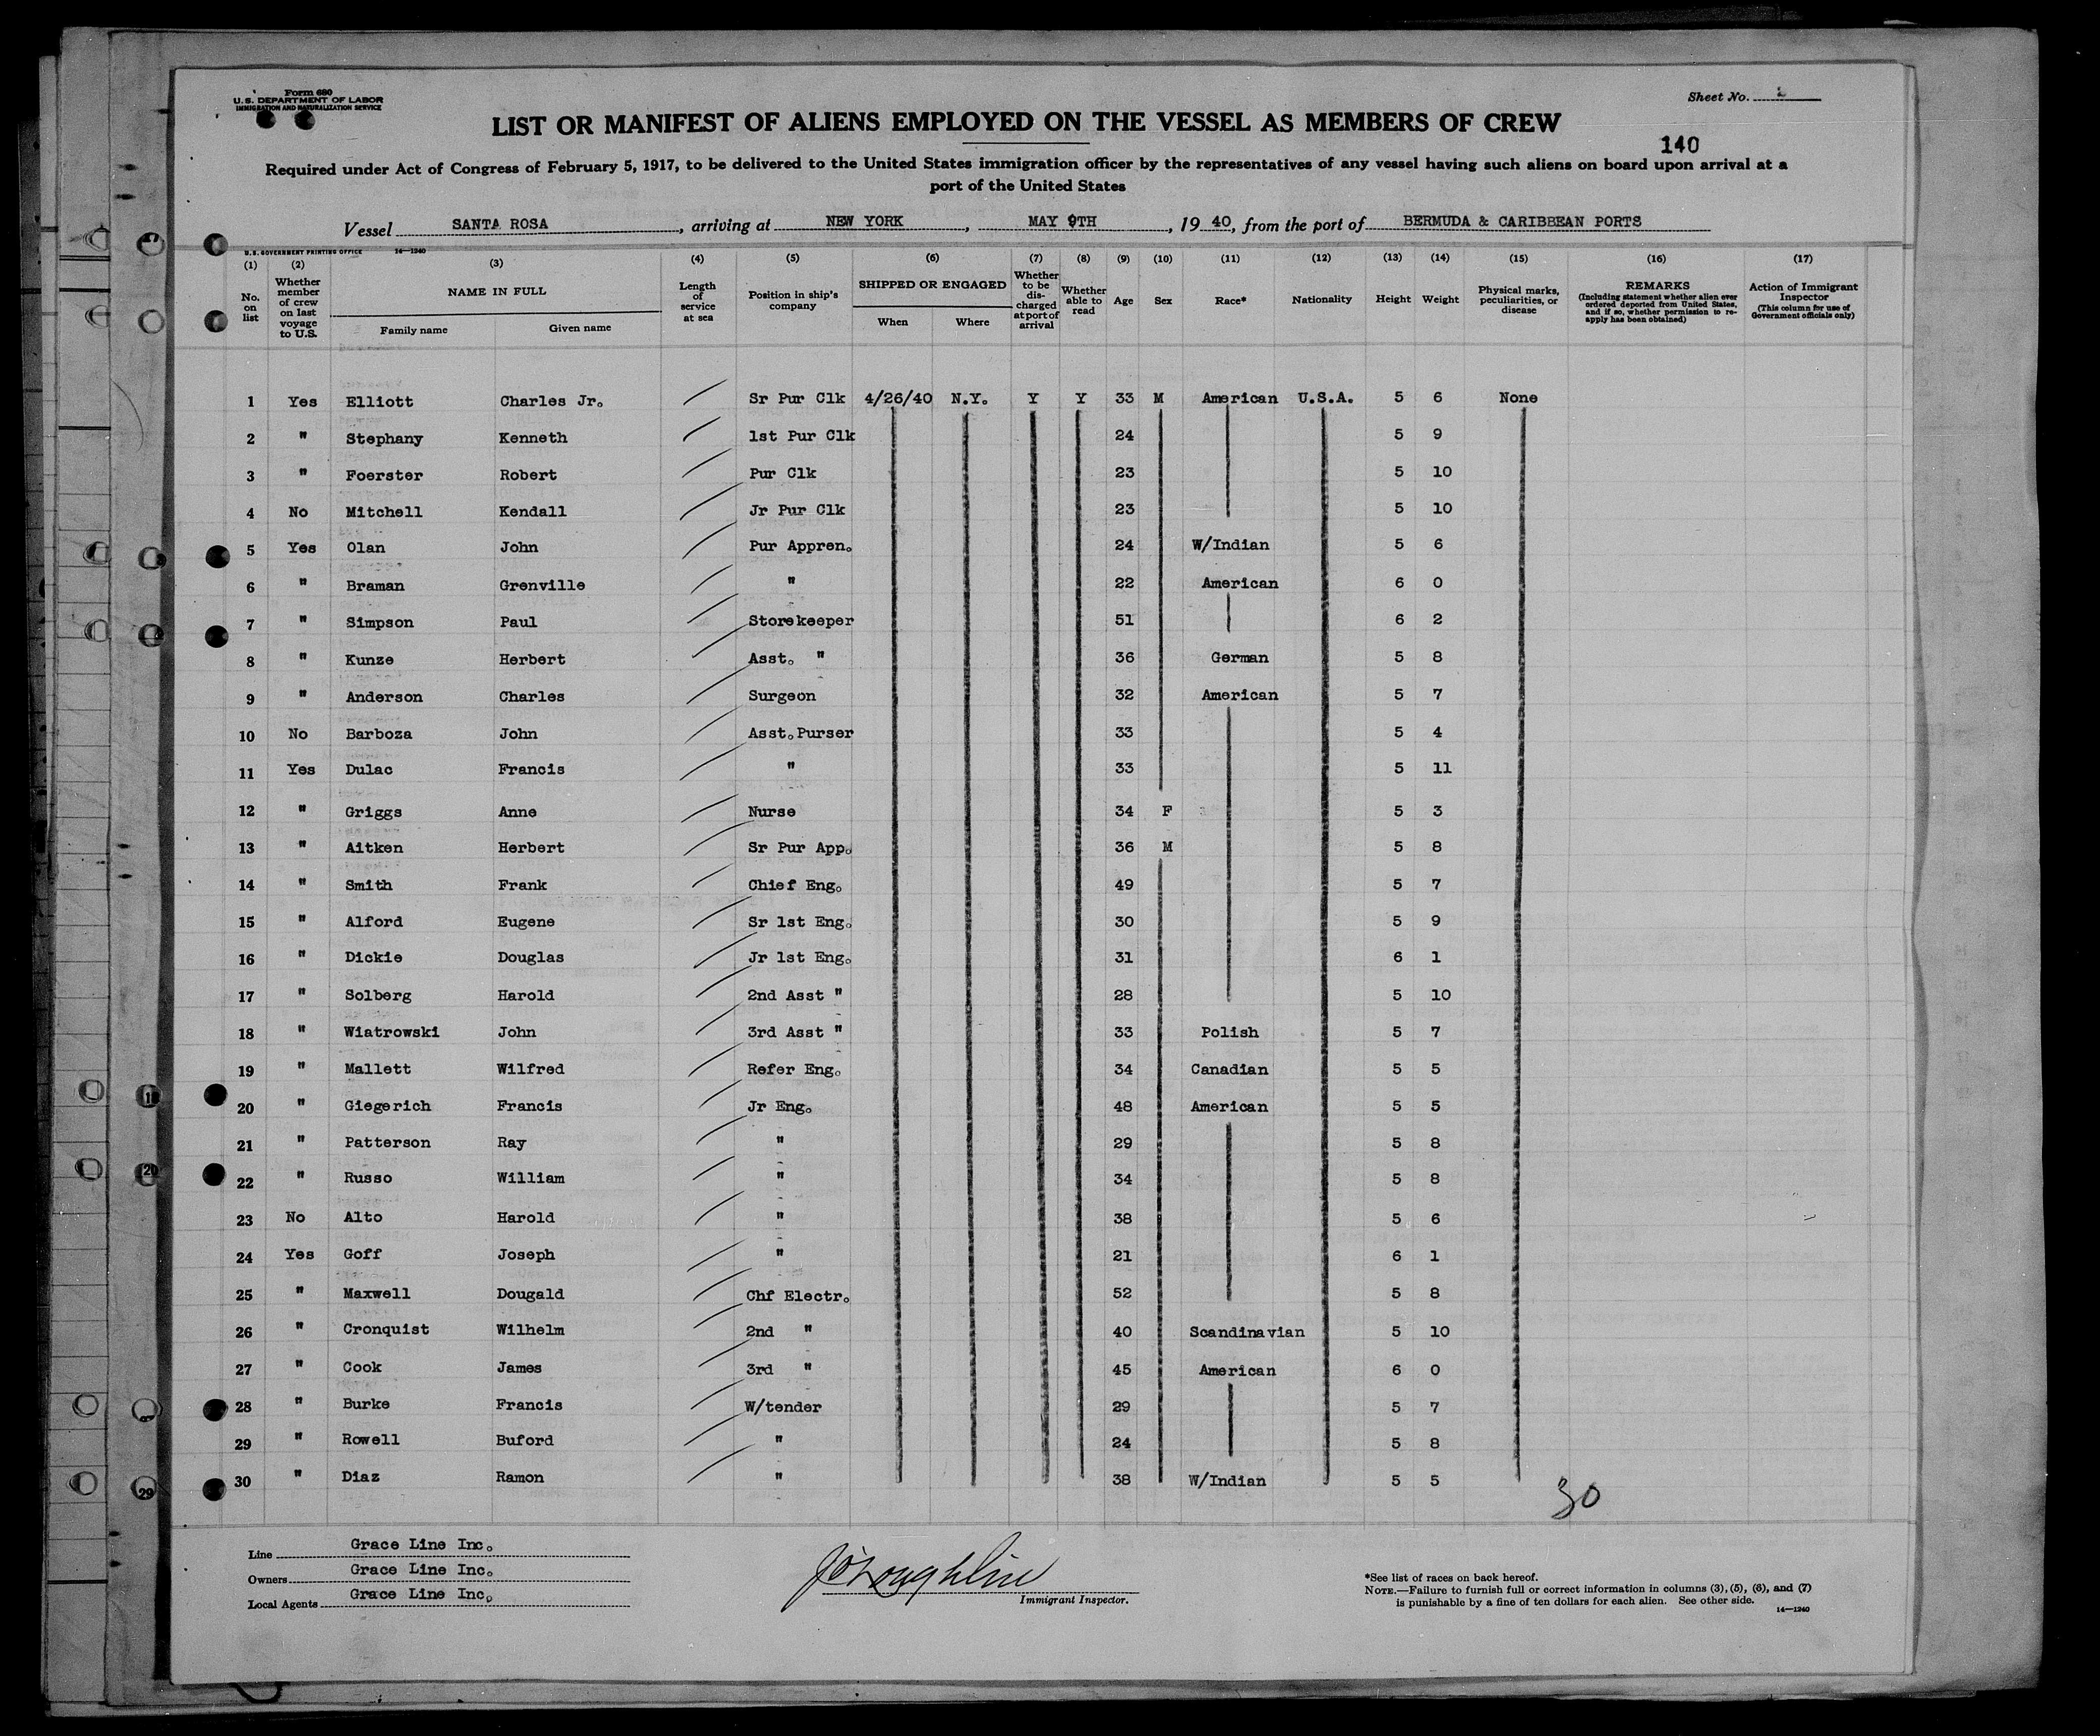 Form 680
U.S. DEPARTMENT OF LABOR
IMMIGRATION AND NATURALIZATION SERVICE
Sheet No.
LIST OR MANIFEST OF ALIENS EMPLOYED ON THE VESSEL AS MEMBERS OF CREW
140
Required under Act of Congress of February 5, 1917, to be delivered to the United States immigration officer by the representatives of any vessel having such aliens on board upon arrival at a
port of the United States
Vessel SANTA ROSA, arriving at NEW YORK, MAY 9TH, 19 40, from the port of BERMUDA & CARIBBEAN PORTS
U.S. GOVERNMENT PRINTING OFFICE 14—1240
(1) (2) (3) (4) (5) (6) (7) (8) (9) (10) (11) (12) (13) (14) (15) (16) (17)
No. on list
Whether member of crew on last voyage to U.S.
NAME IN FULL
Family name
Given name
Length of service at sea
Position in ship's company
SHIPPED OR ENGAGED
When
Where
Whether to be discharged at port of arrival
Whether able to read
Age
Sex
Race*
Nationality
Height
Weight
Physical marks, peculiarities, or disease
REMARKS
(Including statement whether alien ever ordered deported from United States, and if so, whether permission to reapply has been obtained)
Action of Immigrant Inspector
(This column for use of Government officials only)
1 Yes Elliott Charles Jr. Sr Pur Clk 4/26/40 N.Y. Y Y 33 M American U.S.A. 5 6 None
2 " Stephany Kenneth 1st Pur Clk 24 5 9
3 " Foerster Robert Pur Clk 23 5 10
4 No Mitchell Kendall Jr Pur Clk 23 5 10
5 Yes Olan John Pur Appren. 24 W/Indian 5 6
6 " Braman Grenville " 22 American 6 0
7 " Simpson Paul Storekeeper 51 6 2
8 " Kunze Herbert Asst. " 36 German 5 8
9 " Anderson Charles Surgeon 32 American 5 7
10 No Barboza John Asst.Purser 33 5 4
11 Yes Dulac Francis " 33 5 11
12 " Griggs Anne Nurse 34 F 5 3
13 " Aitken Herbert Sr Pur App. 36 M 5 8
14 " Smith Frank Chief Eng. 49 5 7
15 " Alford Eugene Sr 1st Eng. 30 5 9
16 " Dickie Douglas Jr 1st Eng. 31 6 1
17 " Solberg Harold 2nd Asst " 28 5 10
18 " Wiatrowski John 3rd Asst " 33 Polish 5 7
19 " Mallett Wilfred Refer Eng. 34 Canadian 5 5
20 " Giegerich Francis Jr Eng. 48 American 5 5
21 " Patterson Ray " 29 5 8
22 " Russo William " 34 5 8
23 No Alto Harold " 38 5 6
24 Yes Goff Joseph " 21 6 1
25 " Maxwell Dougald Chf Electr. 52 5 8
26 " Cronquist Wilhelm 2nd " 40 Scandinavian 5 10
27 " Cook James 3rd " 45 American 6 0
28 " Burke Francis W/tender 29 5 7
29 " Rowell Buford " 24 5 8
30 " Diaz Ramon " 38 W/Indian 5 5
30
Line Grace Line Inc.
Owners Grace Line Inc.
Local Agents Grace Line Inc.
J O'Loughlin
Immigrant Inspector.
*See list of races on back hereof.
NOTE.—Failure to furnish full or correct information in columns (3), (5), (6), and (7)
is punishable by a fine of ten dollars for each alien. See other side.
14—1240